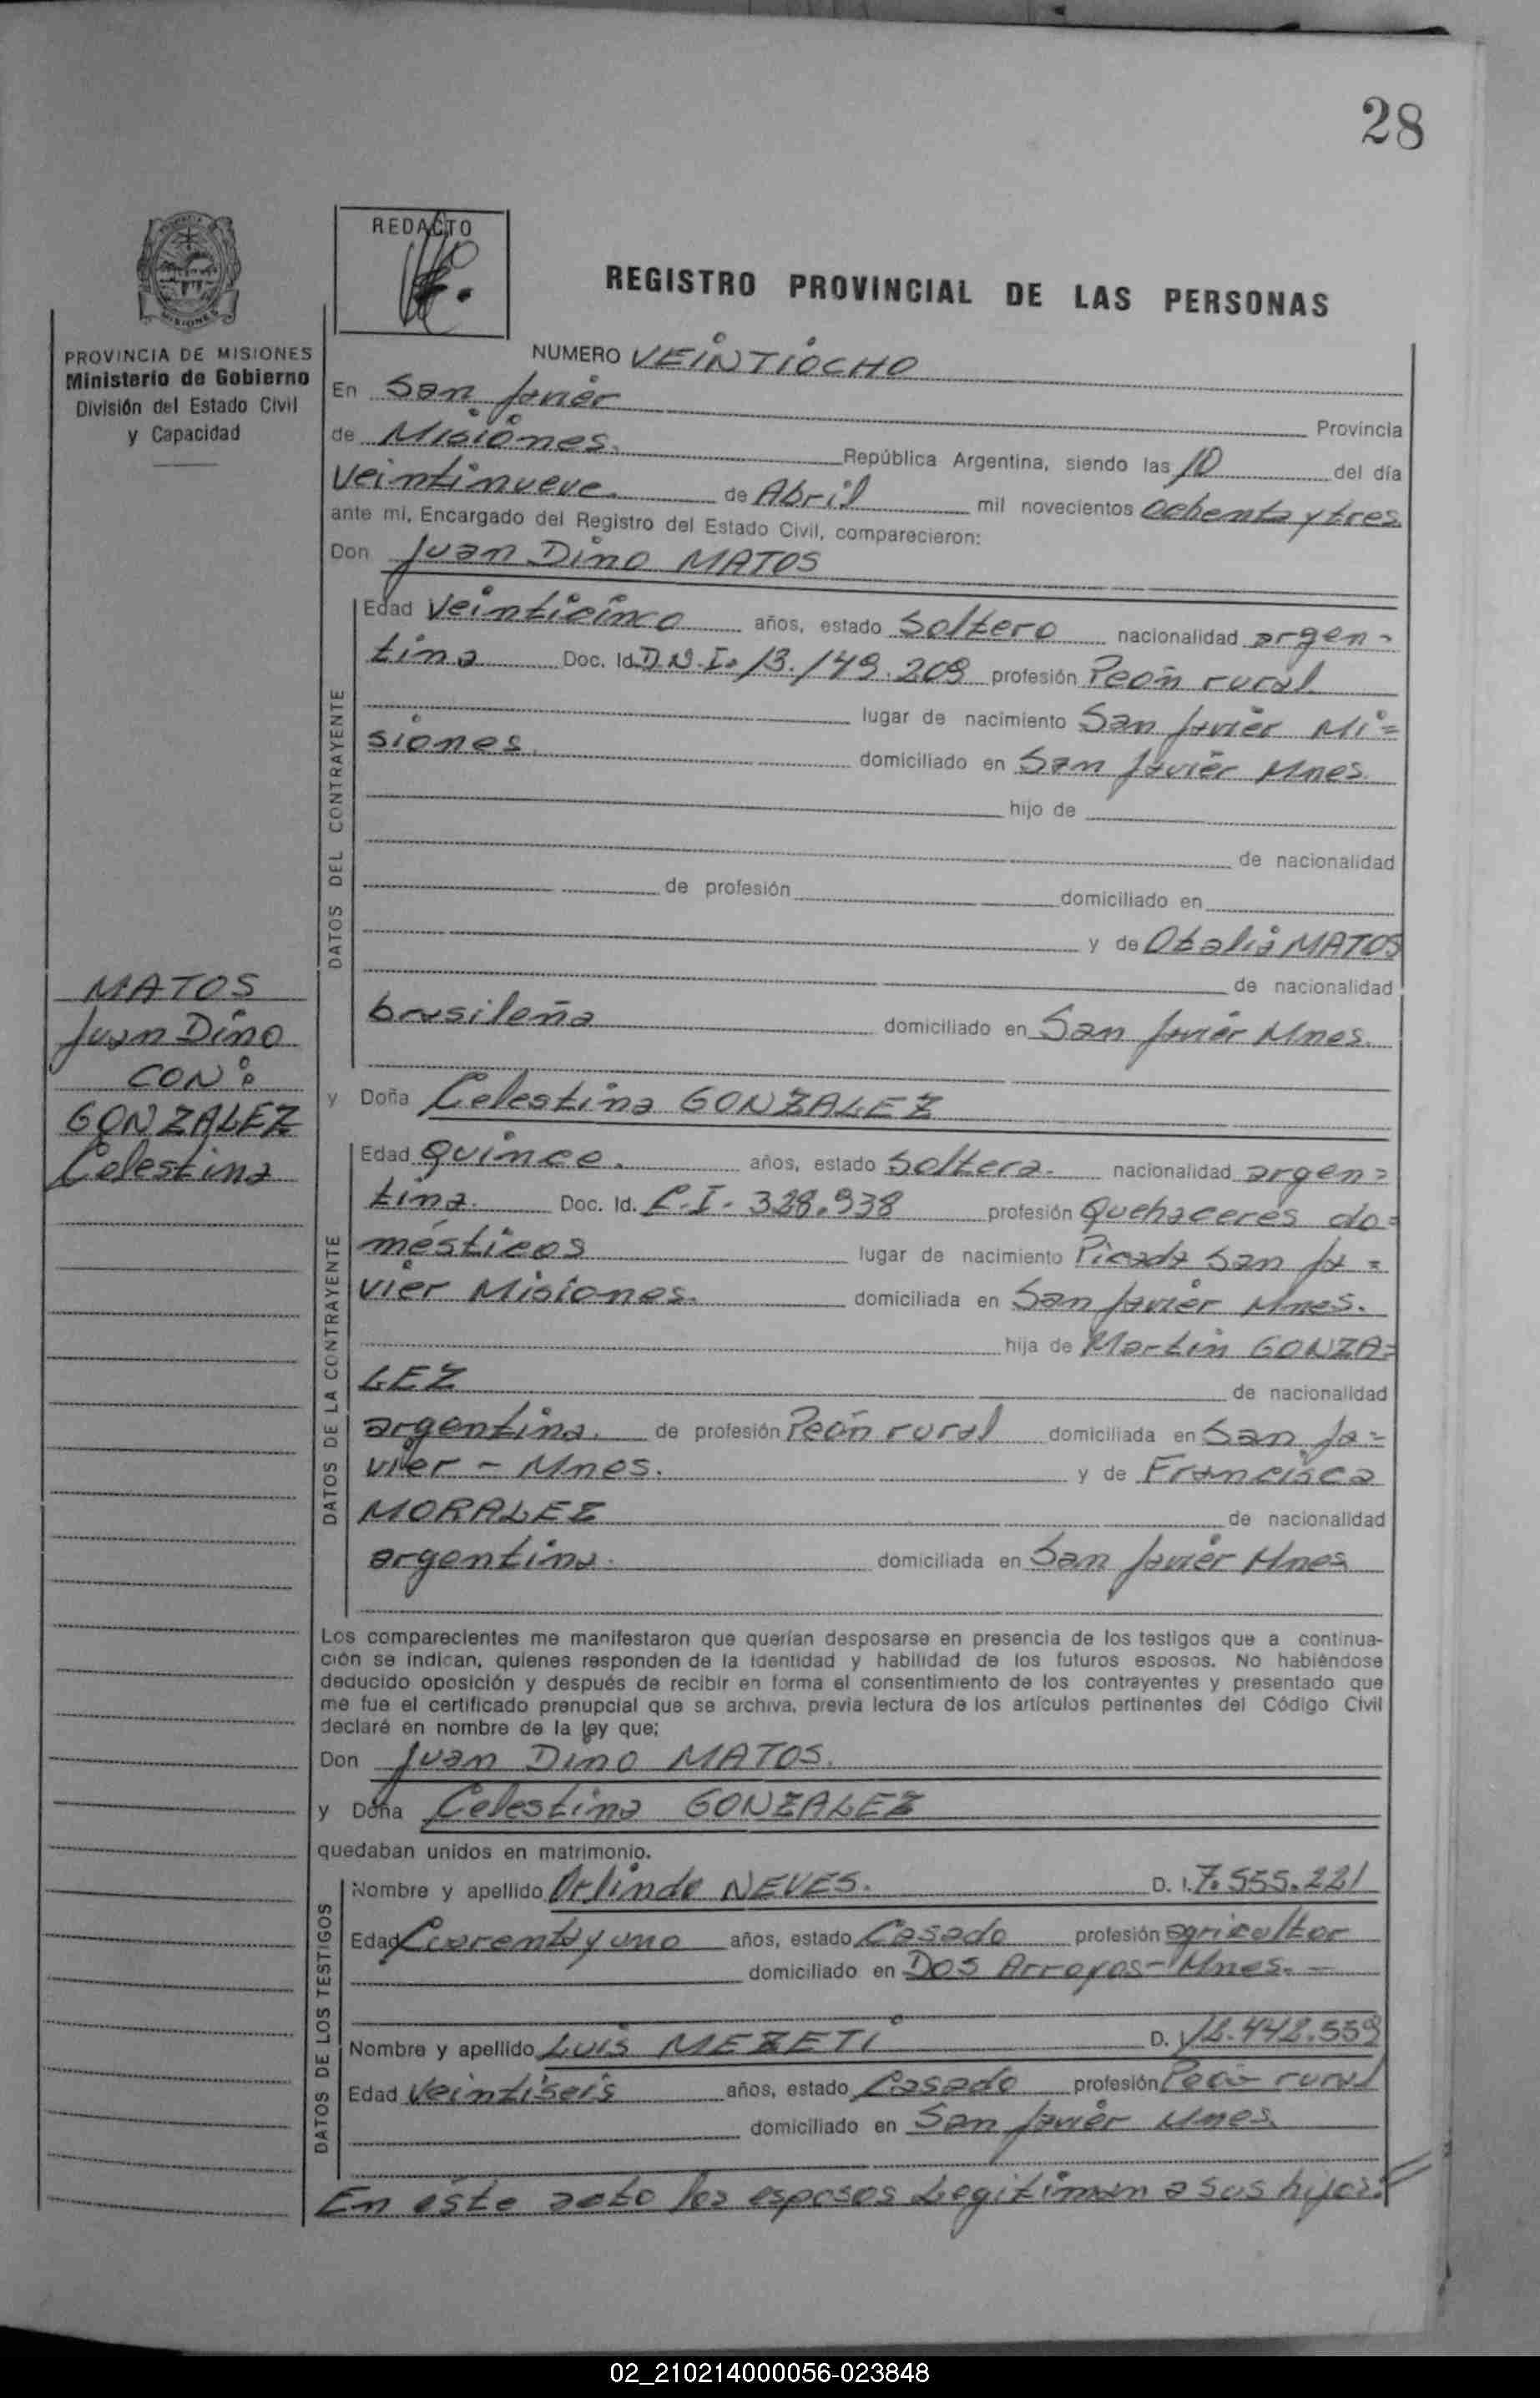 28
REDACTO
REGISTRO PROVINCIAL DE LAS PERSONAS
MISIONES
PROVINCIA DE MISIONES
Ministerio de Gobierno
División del Estado Civil
y Capacidad
NUMERO VEINTIOCHO
En San Javier Provincia
de Misiones. República Argentina, siendo las 10 del día
Veintinueve. de Abril mil novecientos ochenta y tres
ante mí, Encargado del Registro del Estado Civil, comparecieron:
Don Juan Dino MATOS
DATOS DEL CONTRAYENTE
Edad Veinticinco años, estado Soltero nacionalidad argen-
tina Doc. Id. D.N.I. 13.149.209 profesión Peón rural
lugar de nacimiento San Javier Mi=
siones. domiciliado en San Javier Mnes.
hijo de
de nacionalidad
de profesión domiciliado en
y de Otalia MATOS
de nacionalidad
brasileña domiciliado en San Javier Mnes.
MATOS
Juan Dino
CON:
GONZALEZ
Celestina
y Doña Celestina GONZALEZ
DATOS DE LA CONTRAYENTE
Edad quince. años, estado Soltera. nacionalidad argen=
tina. Doc. Id. C.I. 328.938 profesión Quehaceres do=
mésticos lugar de nacimiento Picada San Ja=
vier Misiones. domiciliada en San Javier Mnes.
hija de Martin GONZA=
LEZ de nacionalidad
argentina. de profesión Peón rural domiciliada en San Ja=
vier - Mnes. y de Francisca
MORALEZ de nacionalidad
argentina. domiciliada en San Javier Mnes
Los comparecientes me manifestaron que querían desposarse en presencia de los testigos que a continua-
ción se indican, quienes responden de la identidad y habilidad de los futuros esposos. No habiéndose
deducido oposición y después de recibir en forma el consentimiento de los contrayentes y presentado que
me fue el certificado prenupcial que se archiva, previa lectura de los artículos pertinentes del Código Civil
declaré en nombre de la ley que;
Don Juan Dino MATOS.
y Doña Celestina GONZALEZ
quedaban unidos en matrimonio.
DATOS DE LOS TESTIGOS
Nombre y apellido Orlindo NEVES. D. I. 7.555.221
Edad Cuarenta y uno años, estado Casado profesión agricultor
domiciliado en DOS Arroyos - Mnes. -
Nombre y apellido Luis MEZETI D. I. 12.442.559
Edad Veintiseis años, estado Casado profesión Peón rural
domiciliado en San Javier Mnes
En este acto los esposos Legitiman a sus hijos:
02_210214000056-023848